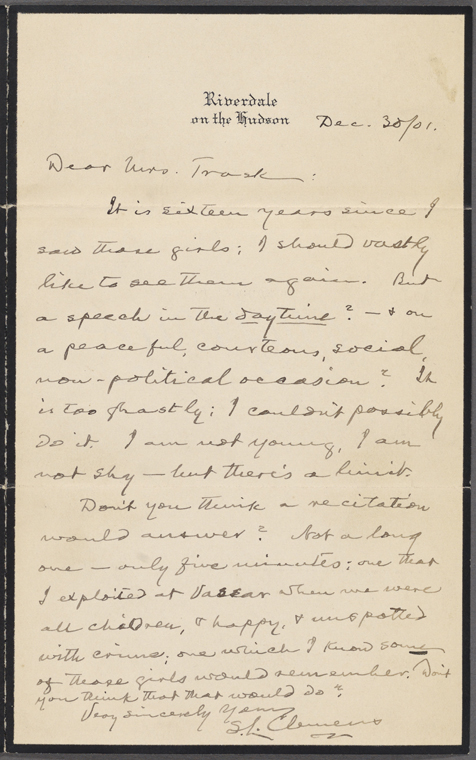 Riverdale
on the Hudson
Dec. 30/01.
Dear Mrs. Trask:
It is sixteen years since I
saw those girls; I should vastly
like to see them again. But
a speech in the daytime? — & on
a peaceful, courteous, social,
non-political occasion? It
is too ghastly; I couldn't possibly
do it. I am not young, I am
not shy — but there's a limit.
Don't you think a recitation
would answer? Not a long
one — only five minutes; one that
I exploited at Vassar when we were
all children, & happy, & unspotted
with crime; one which I know some
of those girls would remember. Don't
you think that that would do?
Very sincerely Yours
S. L. Clemens